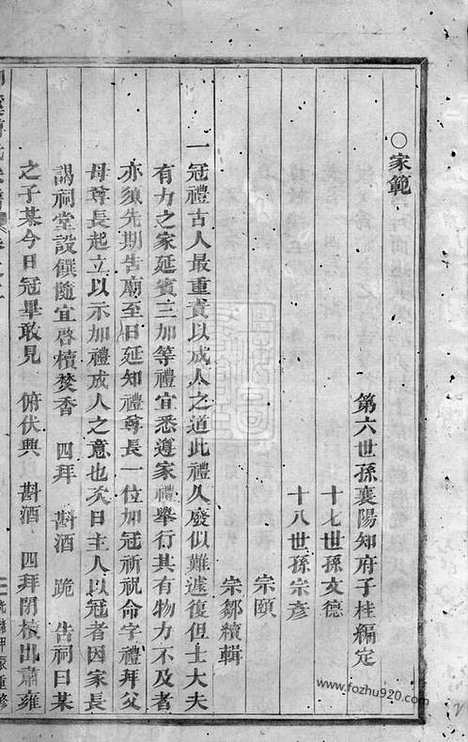 〇家範
第六世孫襄陽知府子桂編定
十七世孫文德
十八世孫宗彥
宗頤
宗鄒續輯
一冠禮古人最重責以成人之道此禮久廢似難遽復但士大夫
有力之家延賓三加等禮宜悉遵家禮舉行其有物力不及者
亦須先期告廟至日延知禮尊長一位加冠祈祝命字禮拜父
母尊長起立以示加禮成人之意也次日主人以冠者因家長
謁祠堂設饌隨宜啓櫝焚香 四拜 斟酒 跪 告祠曰某
之子某今日冠畢敢見 俯伏興 斟酒 四拜閉櫝出肅雍
重修
www.fozhu920.com